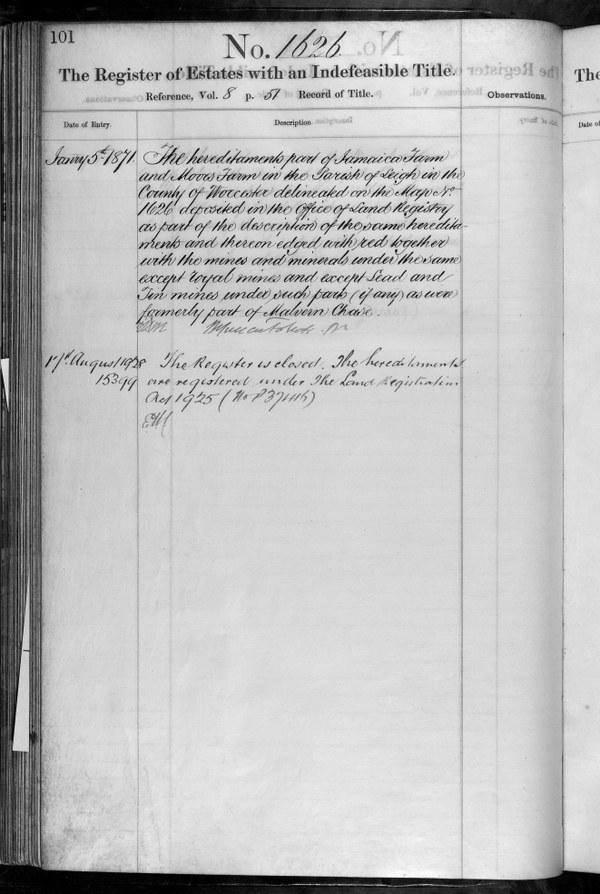 101
No. 1626
The Register of Estates with an Indefeasible Title.
Reference, Vol. 8 p. 51 Record of Title.
Observations.
Date of Entry.
Description.
Janry 5th 1871.
The hereditaments part of Jamaica Farm
and Moors Farm in the Parish of Leigh in the
County of Worcester delineated on the Map No
1626 deposited in the Office of Land Registry
as part of the description of the same heredita-
ments and thereon edged with red together
with the mines and minerals under the same
except royal mines and except Lead and
Tin mines under such parts (if any) as were
formerly part of Malvern Chase
17th August 1928
15399
The Register is closed. The hereditaments
are registered under The Land Registration
Act 1925 (No P37446)
The
Date of